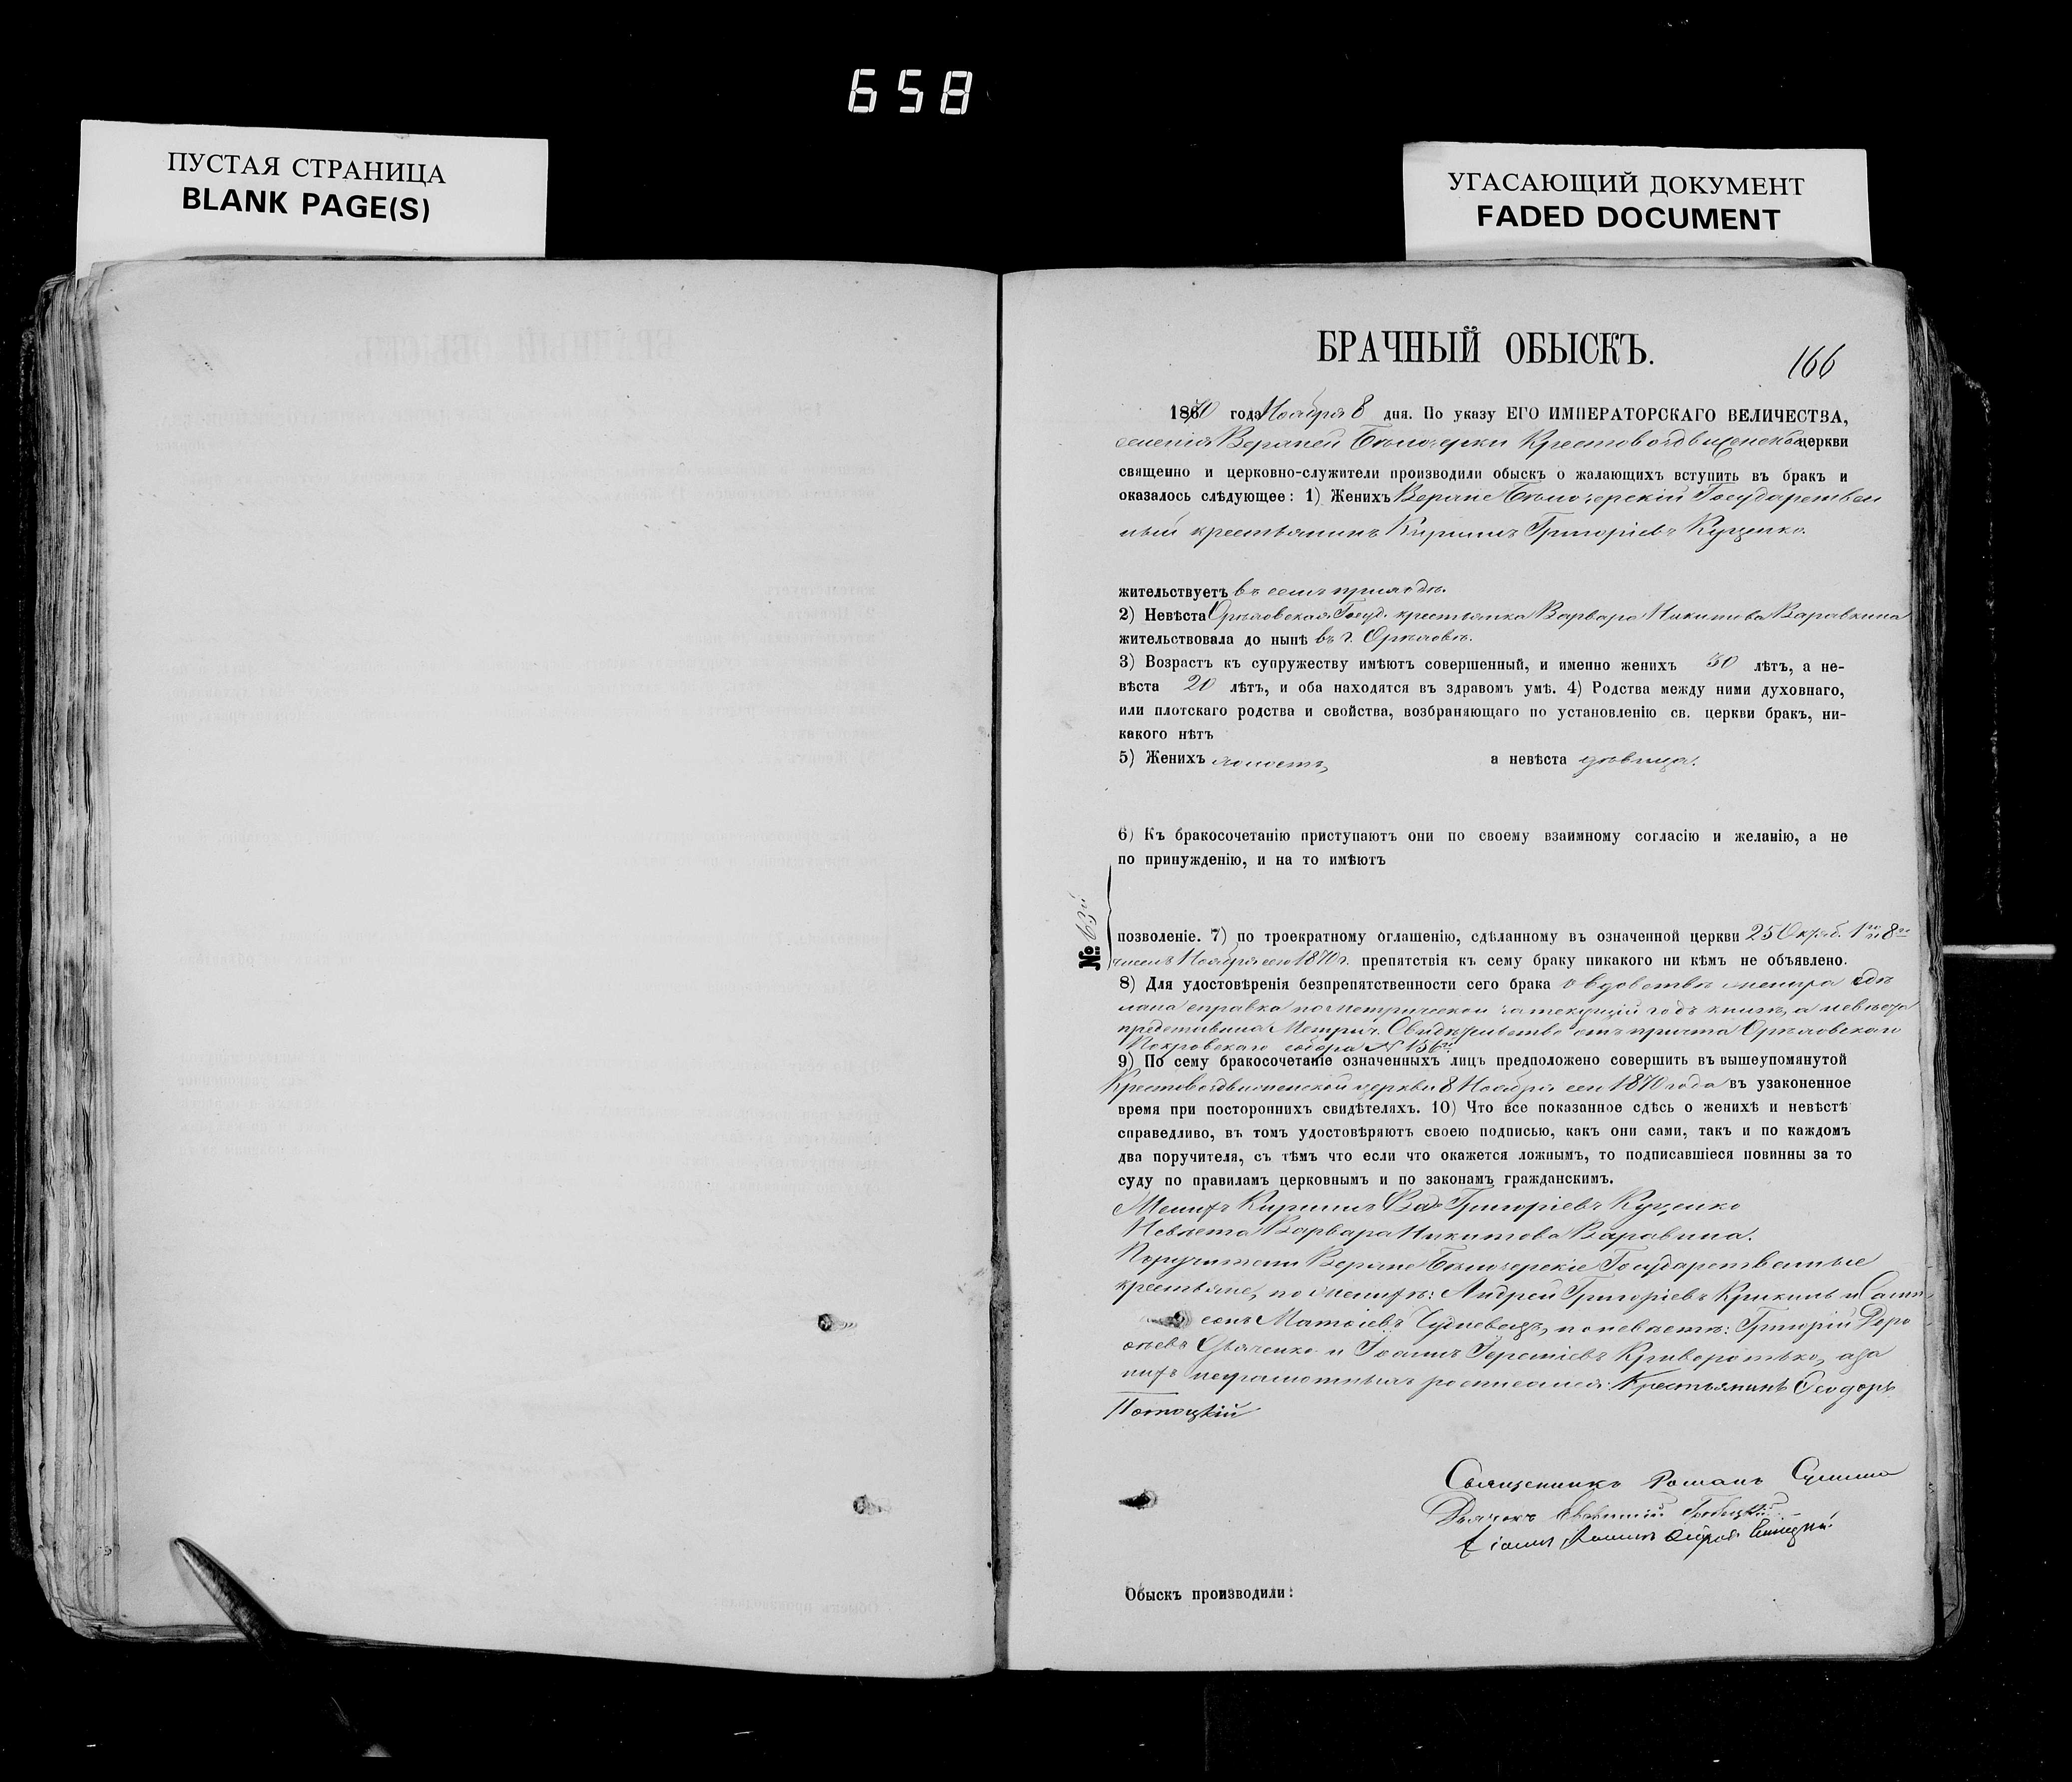 658
ПУСТАЯ СТРАНИЦА
BLANK PAGE(S)
УГАСАЮЩИЙ ДОКУМЕНТ
FADED DOCUMENT
БРАЧНЫЙ ОБЫСКЪ.
166
1870 года Ноября 8 дня. По указу ЕГО ИМПЕРАТОРСКАГО ВЕЛИЧЕСТВА,
селенія Верхней Бѣлозерки Крестовоздвиженской церкви
священно и церковно-служители производили обыскъ о жалающихъ вступить въ бракъ и
оказалось слѣдующее: 1) Женихъ Верхне Бѣлозерскій Государствен
ный крестьянинъ Кириллъ Григоріевъ Куценко.
жительствуетъ въ семъ приходѣ.
2) Невѣста Орѣховская Госуд. крестьянка Варвара Никитова
жительствовала до нынѣ въ г. Орѣховѣ.
3) Возрастъ къ супружеству имѣютъ совершенный, и именно женихъ 30 лѣтъ, а не-
вѣста 20 лѣтъ, и оба находятся въ здравомъ умѣ. 4) Родства между ними духовнаго,
или плотскаго родства и свойства, возбраняющаго по установленію св. церкви бракъ, ни-
какого нѣтъ
5) Женихъ а невѣста дѣвица.
6) Къ бракосочетанію приступаютъ они по своему взаимному согласію и желанію, а не
по принужденію, и на то имѣютъ
№ 63й
позволеніе. 7) по троекратному оглашенію, сдѣланному въ означенной церкви 25 Октяб. 1го и 8го
числъ Ноября сего 1870 г. препятствія къ сему браку никакого ни кѣмъ не объявлено.
8) Для удостовѣренія безпрепятственности сего брака о вдовствѣ жениха сдѣ
лана справка по метрической за текущій годъ книгѣ, а невѣста
представила Метрич. Свидѣтельство отъ причта Орѣховскаго
Покровскаго собора № 156й
9) По сему бракосочетаніе означенныхъ лицъ предположено совершить въ вышеупомянутой
Крестовоздвиженской церкви 8 Ноября сего 1870 года въ узаконенное
время при постороннихъ свидѣтеляхъ. 10) Что все показанное сдѣсь о женихѣ и невѣстѣ
справедливо, въ томъ удостовѣряютъ своею подписью, какъ они сами, такъ и по каждомъ
два поручителя, съ тѣмъ что если что окажется ложнымъ, то подписавшіеся повинны за то
суду по правиламъ церковнымъ и по законамъ гражданскимъ.
Женихъ Кириллъ Григоріевъ Куценко
Невѣста Варвара Никитова
Поручители Верхне Бѣлозерскіе Государственные
крестьяне, по женихѣ: Андрей Григоріевъ и Самп
сонъ по невѣстѣ: Григорій Доро
ѳеевъ Дьяченко и Іоаннъ а за
нихъ неграмотныхъ росписался: Крестьянинъ Ѳеодоръ
Потоцкій
Священникъ Романъ
Дьячокъ Евѳимій
Обыскъ производили: